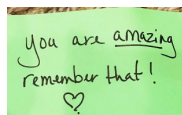 you are amazing
remember that!